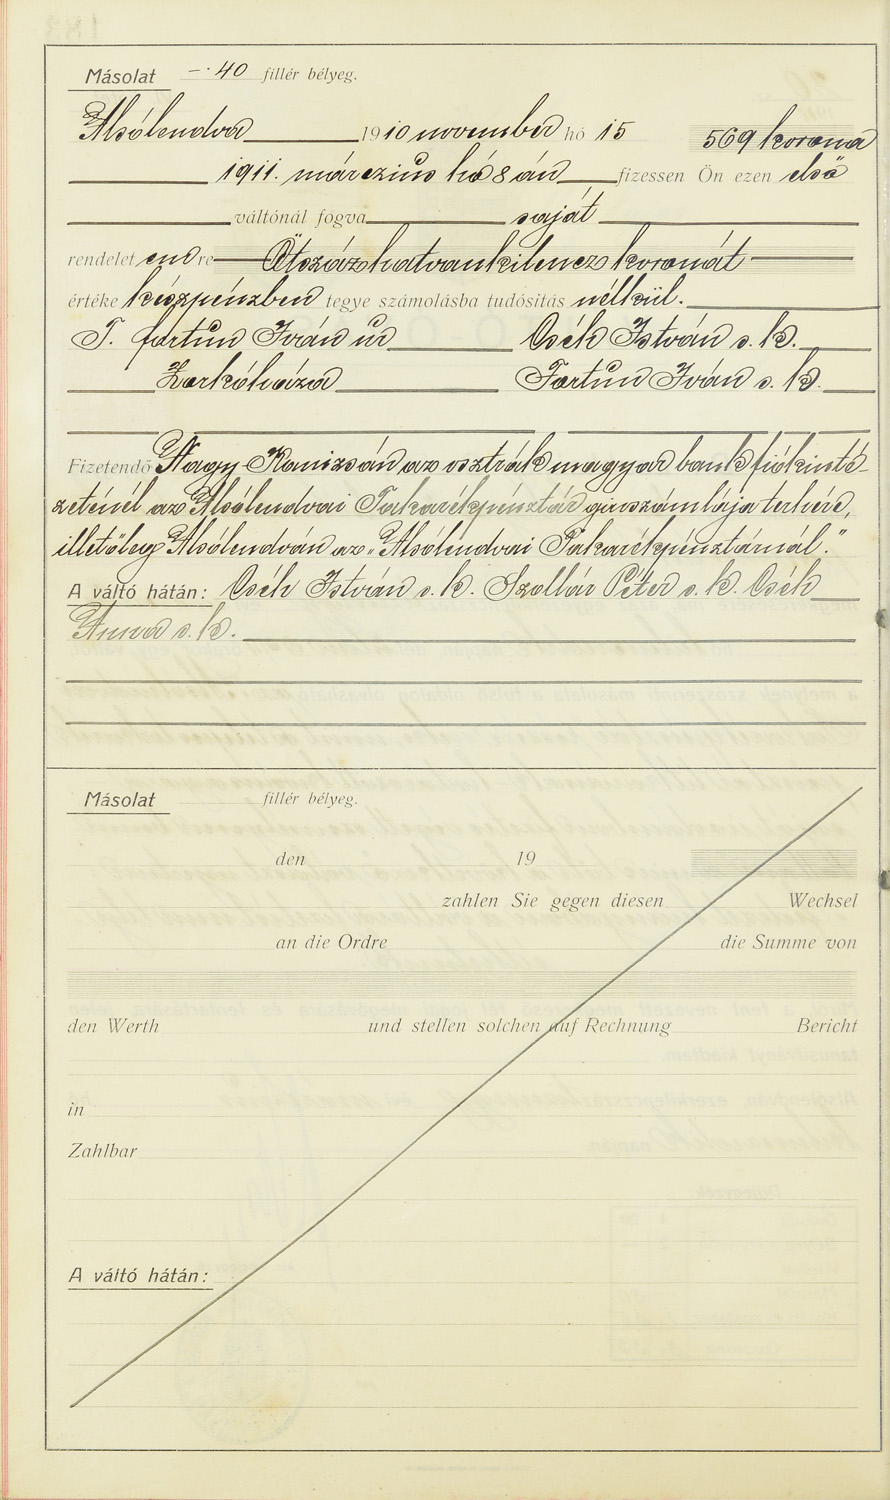 Másolat —·40 fillér bélyeg.
Alsólendva 1910 november hó 15 569 korona
1911. márczius hó 8 án fizessen Ön ezen első
váltónál fogva saját
rendeletemre Ötszázhatvankilencz koronát
értéke készpénzben tegye számolásba tudósitás nélkül.
T. Fartun Iván úr Cséh István s. k.
Zorkóháza Fartun Iván s. k.
Fizetendő Nagy-Kanizsán az osztrák magyar bank fiókinté-
zeténél az Alsólendvai Takarékpénztár girószámlája terhére,
illetőleg Alsólendván az "Alsólendvai Takarékpénztárnál."
A váltó hátán: Cséh István s. k. Szollár Péter s. k. Cséh
Anna s. k.
Másolat fillér bélyeg.
den 19
zahlen Sie gegen diesen Wechsel
an die Ordre die Summe von
den Werth und stellen solchen auf Rechnung Bericht
in
Zahlbar
A váltó hátán: